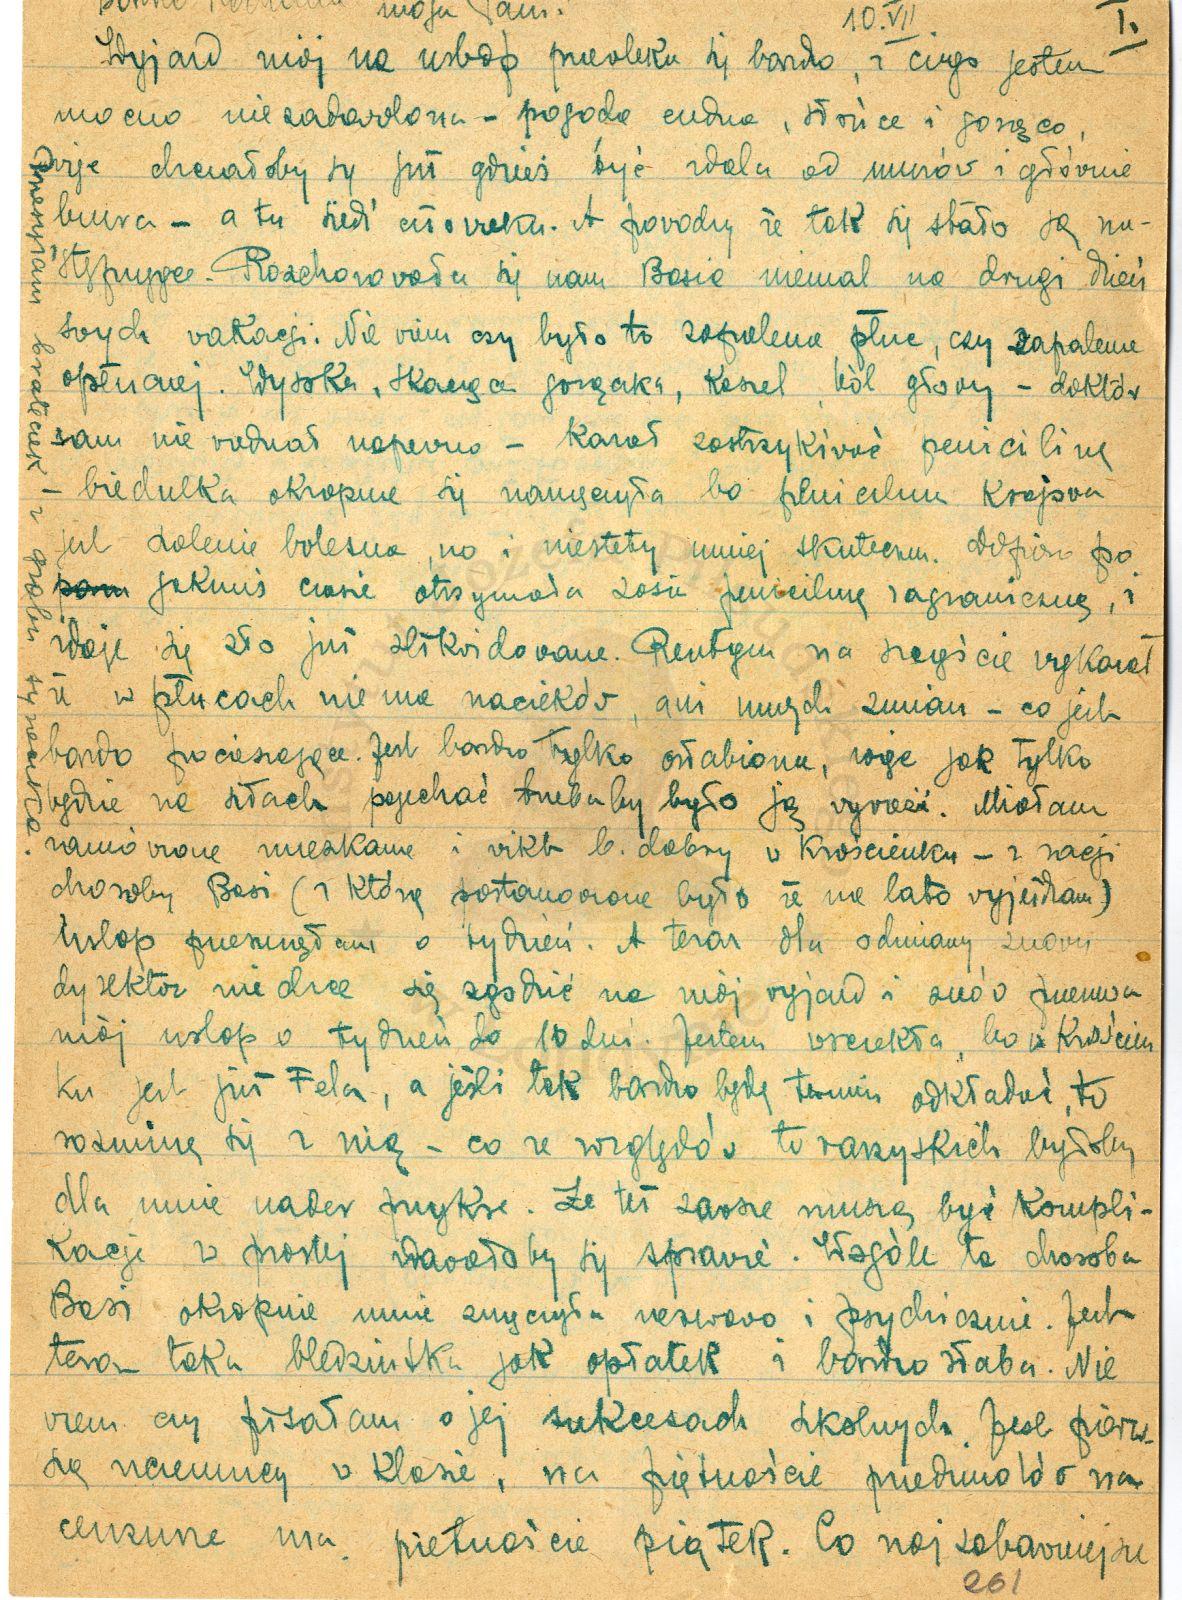 moja Pani!
10.VII
I.
Wyjazd mój na urlop przewleka się bardzo, z czego jestem
mocno niezadowolona – pogoda cudna, słońce i gorąco,
więc chciałoby się już gdzieś być zdala od murów i głównie
biura – a tu siedź człowieku. A powody że tak się stało są na-
stępujące. Rozchorowała się nam Basia niemal na drugi dzień
swych wakacji. Nie wiem czy było to zapalenie płuc, czy zapalenie
opłucnej. Wysoka, skacząca gorączka, kaszel, ból głowy – doktór
sam nie wiedział napewno – kazał zastrzykiwać penicilinę
– biedulka okropnie się namęczyła bo penicilina krajowa
jest szalenie bolesna, no i niestety mniej skuteczna. Dopiero po
jakimś czasie otrzymała Zosia penicilinę zagraniczną, i
zdaje się zło już zlikwidowane. Rentgen na szczęście wykazał
że w płucach nie ma nacieków, ani innych zmian – co jest
bardzo pocieszające. Jest bardzo tylko osłabiona, więc jak tylko
będzie na siłach pojechać trzebaby było ją wywieźć. Miałam
zamówione mieszkanie i wikt b. dobry w Krościenku – z racji
choroby Basi (z którą postanowione było że na lato wyjeżdżam)
urlop przesunęłam o tydzień. A teraz dla odmiany znowu
dyrektor nie chce się zgodzić na mój wyjazd i znów przesuwa
mój urlop o tydzień do 10 dni. Jestem wściekła, bo w Krościen
ku jest już Fela, a jeśli tak bardzo będę termin odkładać, to
rozminę się z nią – co ze względów towarzyskich byłoby
dla mnie nader przykre. Że też zawsze muszą być kompli-
kacje w prostej zdawałoby się sprawie. Wogóle ta choroba
Basi okropnie mnie zmęczyła nerwowo i psychicznie. Jest
teraz taka bledziuśka jak opłatek i bardzo słaba. Nie
wiem czy pisałam o jej sukcesach szkolnych. Jest pierw-
szą uczennicą w klasie, na piętnaście przedmiotów na
cenzurze ma piętnaście piątek. Co najzabawniejsze
261
braciszek z grobu